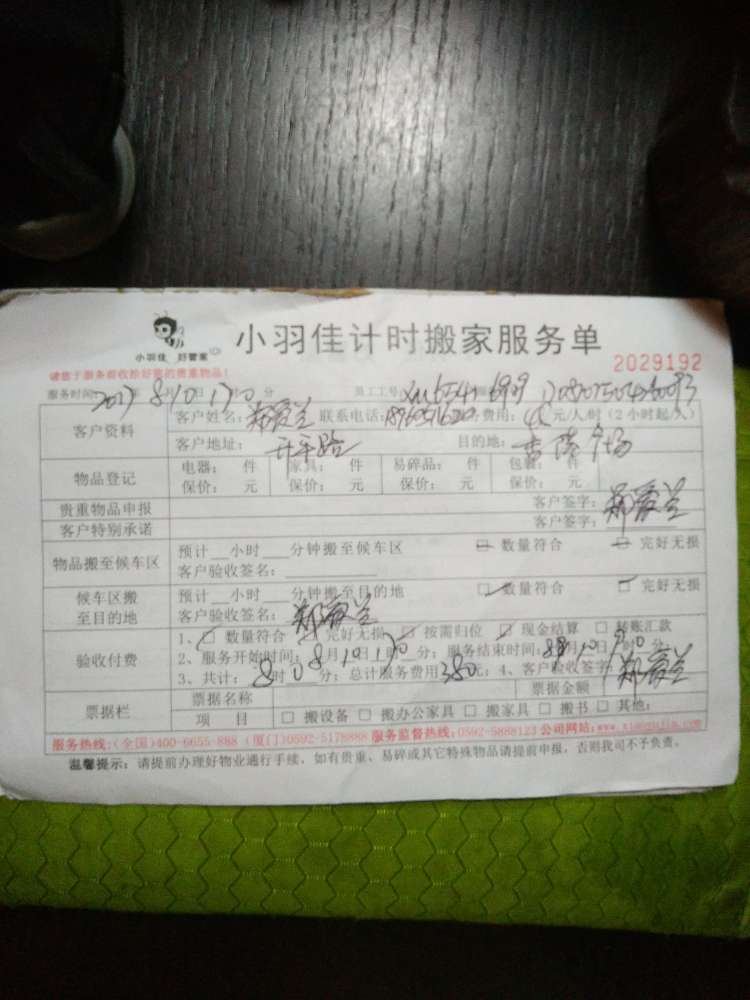 小羽佳 好管家
小羽佳计时搬家服务单
请您于服务前收拾好您的贵重物品!
2029192
服务时间: 2017 年 8 月 10 日 分 员工工号:
客户资料
客户姓名: 郑爱兰 联系电话: 服务费用: 元/人/时(2小时起/人)
客户地址: 开平路 目的地: 广场
物品登记
电器: 件 家具: 件 易碎品: 件 包裹: 件
保价: 元 保价: 元 保价: 元 保价: 元
贵重物品申报 客户签字: 郑爱兰
客户特别承诺 客户签字:
物品搬至候车区
预计__小时____分钟搬至候车区 数量符合 完好无损
客户验收签名:
候车区搬至目的地
预计__小时____分钟搬至目的地 数量符合 完好无损
客户验收签名: 郑爱兰
验收付费
1、 数量符合 完好无损 按需归位 现金结算 转账汇款
2、服务开始时间: 8月10日 时 分; 服务结束时间: 8月10日 时 分;
3、共计: 8时0分; 总计服务费用 380 元; 4、客户验收签字: 郑爱兰
票据栏
票据名称 票据金额
项 目 □ 搬设备 □ 搬办公家具 □ 搬家具 □ 搬书 □ 其他:
服务热线:(全国)400-6655-888 (厦门)0592-5178888 服务监督热线:0592-5888123 公司网站:
温馨提示: 请提前办理好物业通行手续。如有贵重、易碎或其它特殊物品请提前申报,否则我司不予负责。